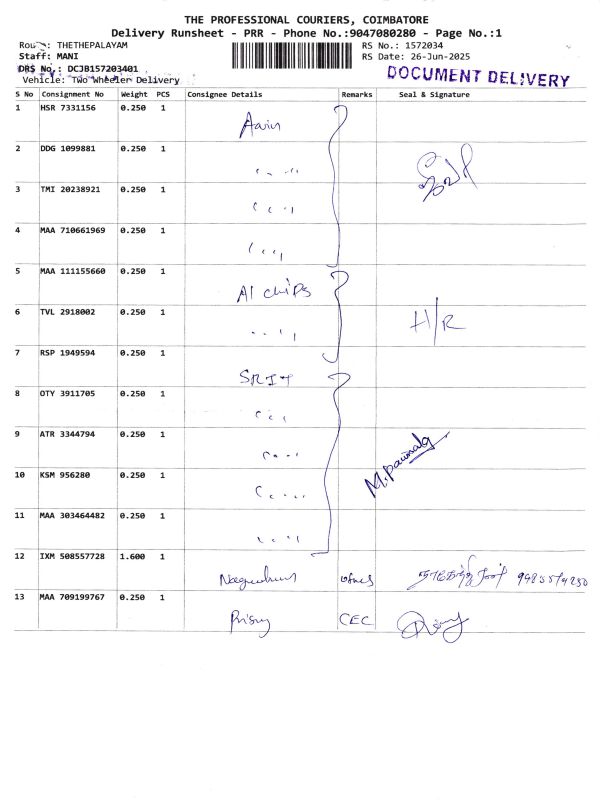 THE PROFESSIONAL COURIERS, COIMBATORE
Delivery Runsheet - PRR - Phone No.:9047080280 - Page No.:1
Route: THETHEPALAYAM
RS No.: 1572034
Staff: MANI
RS Date: 26-Jun-2025
DRS No.: DCJB157203401
DOCUMENT DELIVERY
Vehicle: Two Wheeler Delivery
S No Consignment No Weight PCS Consignee Details Remarks Seal & Signature
1 HSR 7331156 0.250 1
2 DDG 1099881 0.250 1
3 TMI 20238921 0.250 1
4 MAA 710661969 0.250 1
5 MAA 111155660 0.250 1
AI chips
6 TVL 2918002 0.250 1
H/R
7 RSP 1949594 0.250 1
SRIT
8 OTY 3911705 0.250 1
9 ATR 3344794 0.250 1
10 KSM 956280 0.250 1
11 MAA 303464482 0.250 1
12 IXM 508557728 1.600 1
13 MAA 709199767 0.250 1
CEC